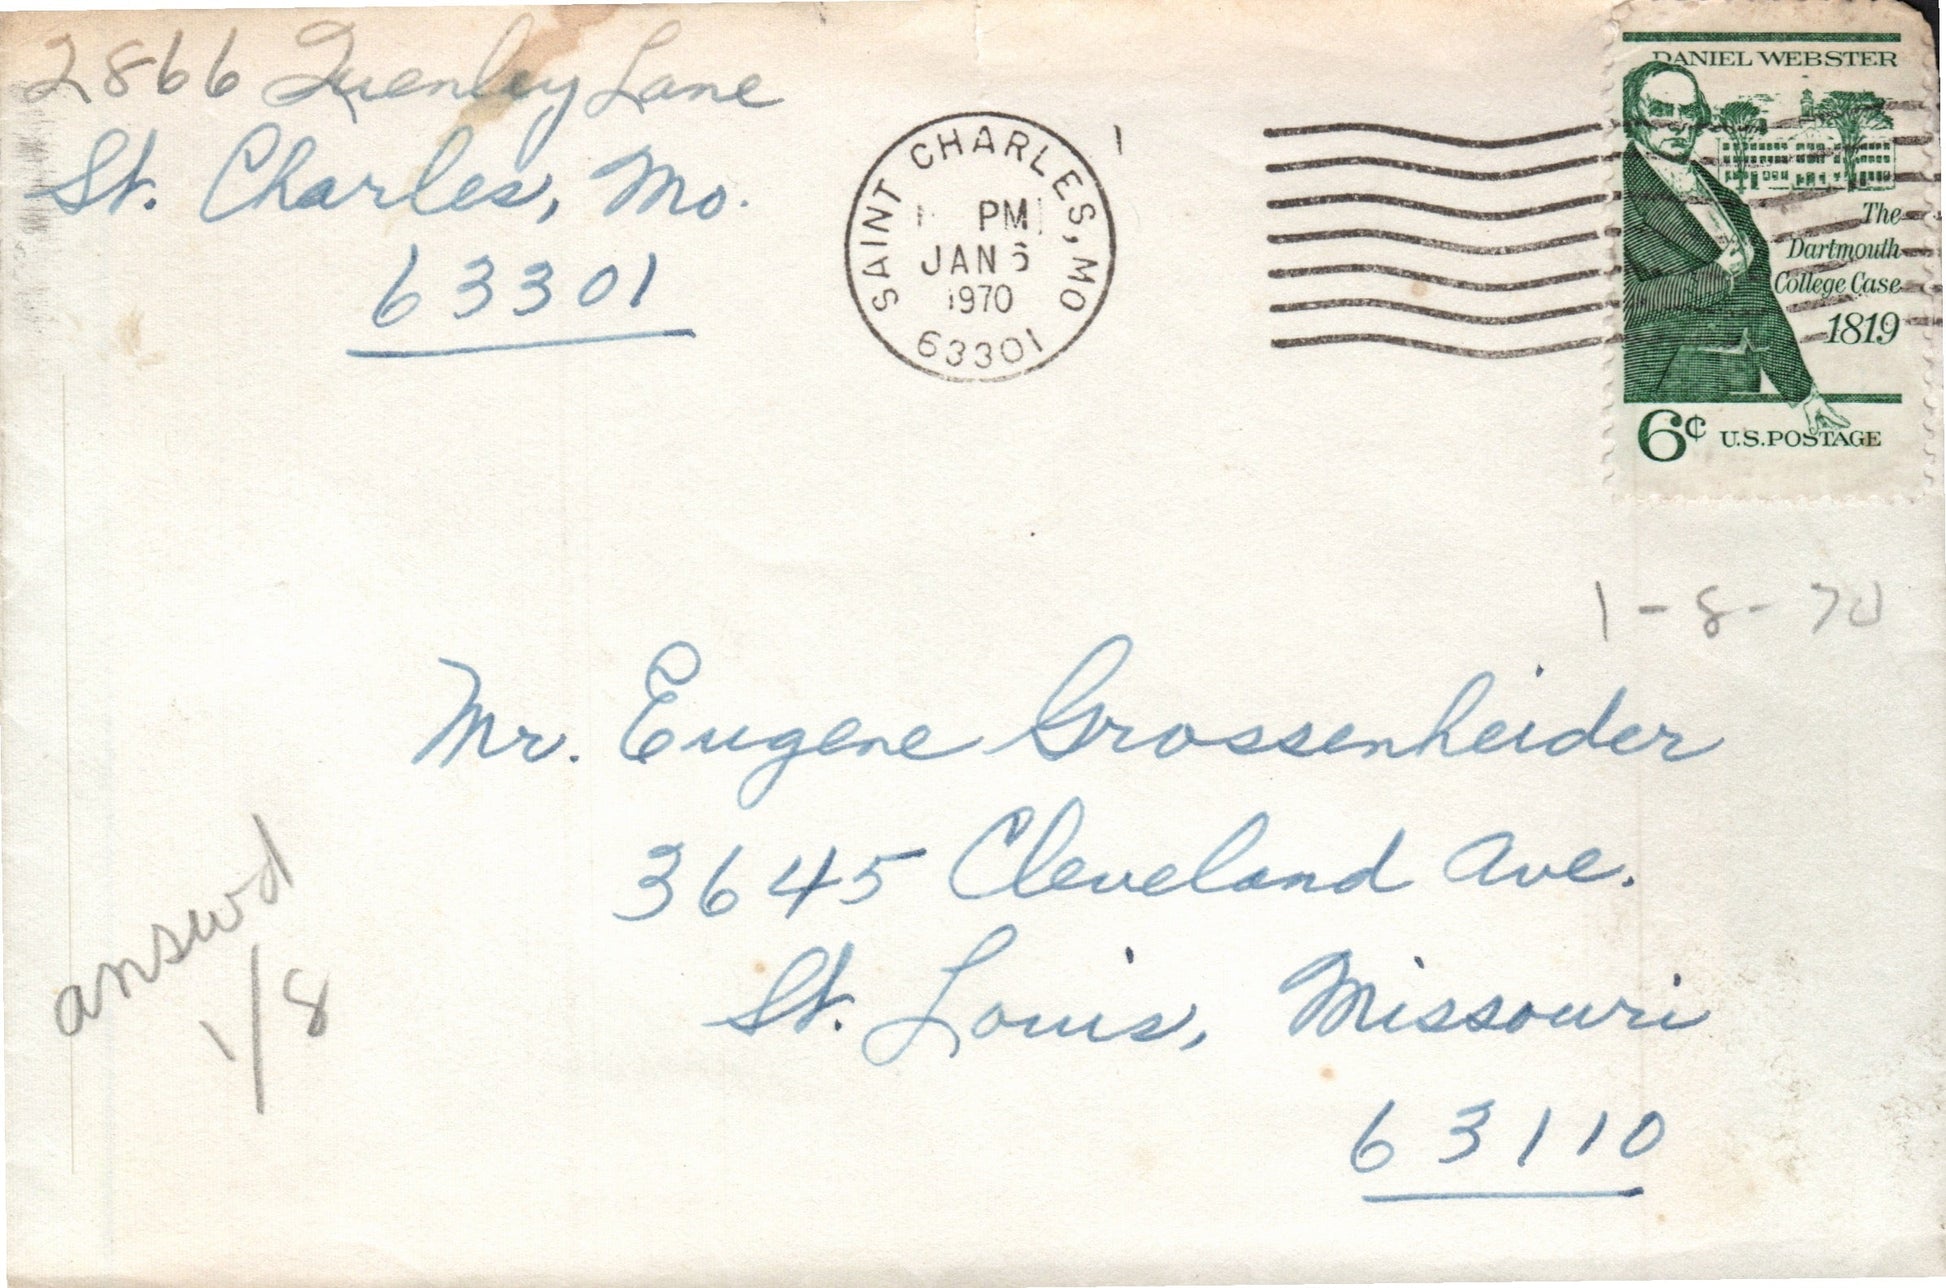 2866 Quenley Lane
St. Charles, Mo.
63301
SAINT CHARLES, MO
PM
JAN 6
1970
63301
DANIEL WEBSTER
The
Dartmouth
College Case
1819
6¢ U.S.POSTAGE
1-8-70
Mr. Eugene Grossenheider
3645 Cleveland Ave.
St. Louis, Missouri
63110
answd
1/8